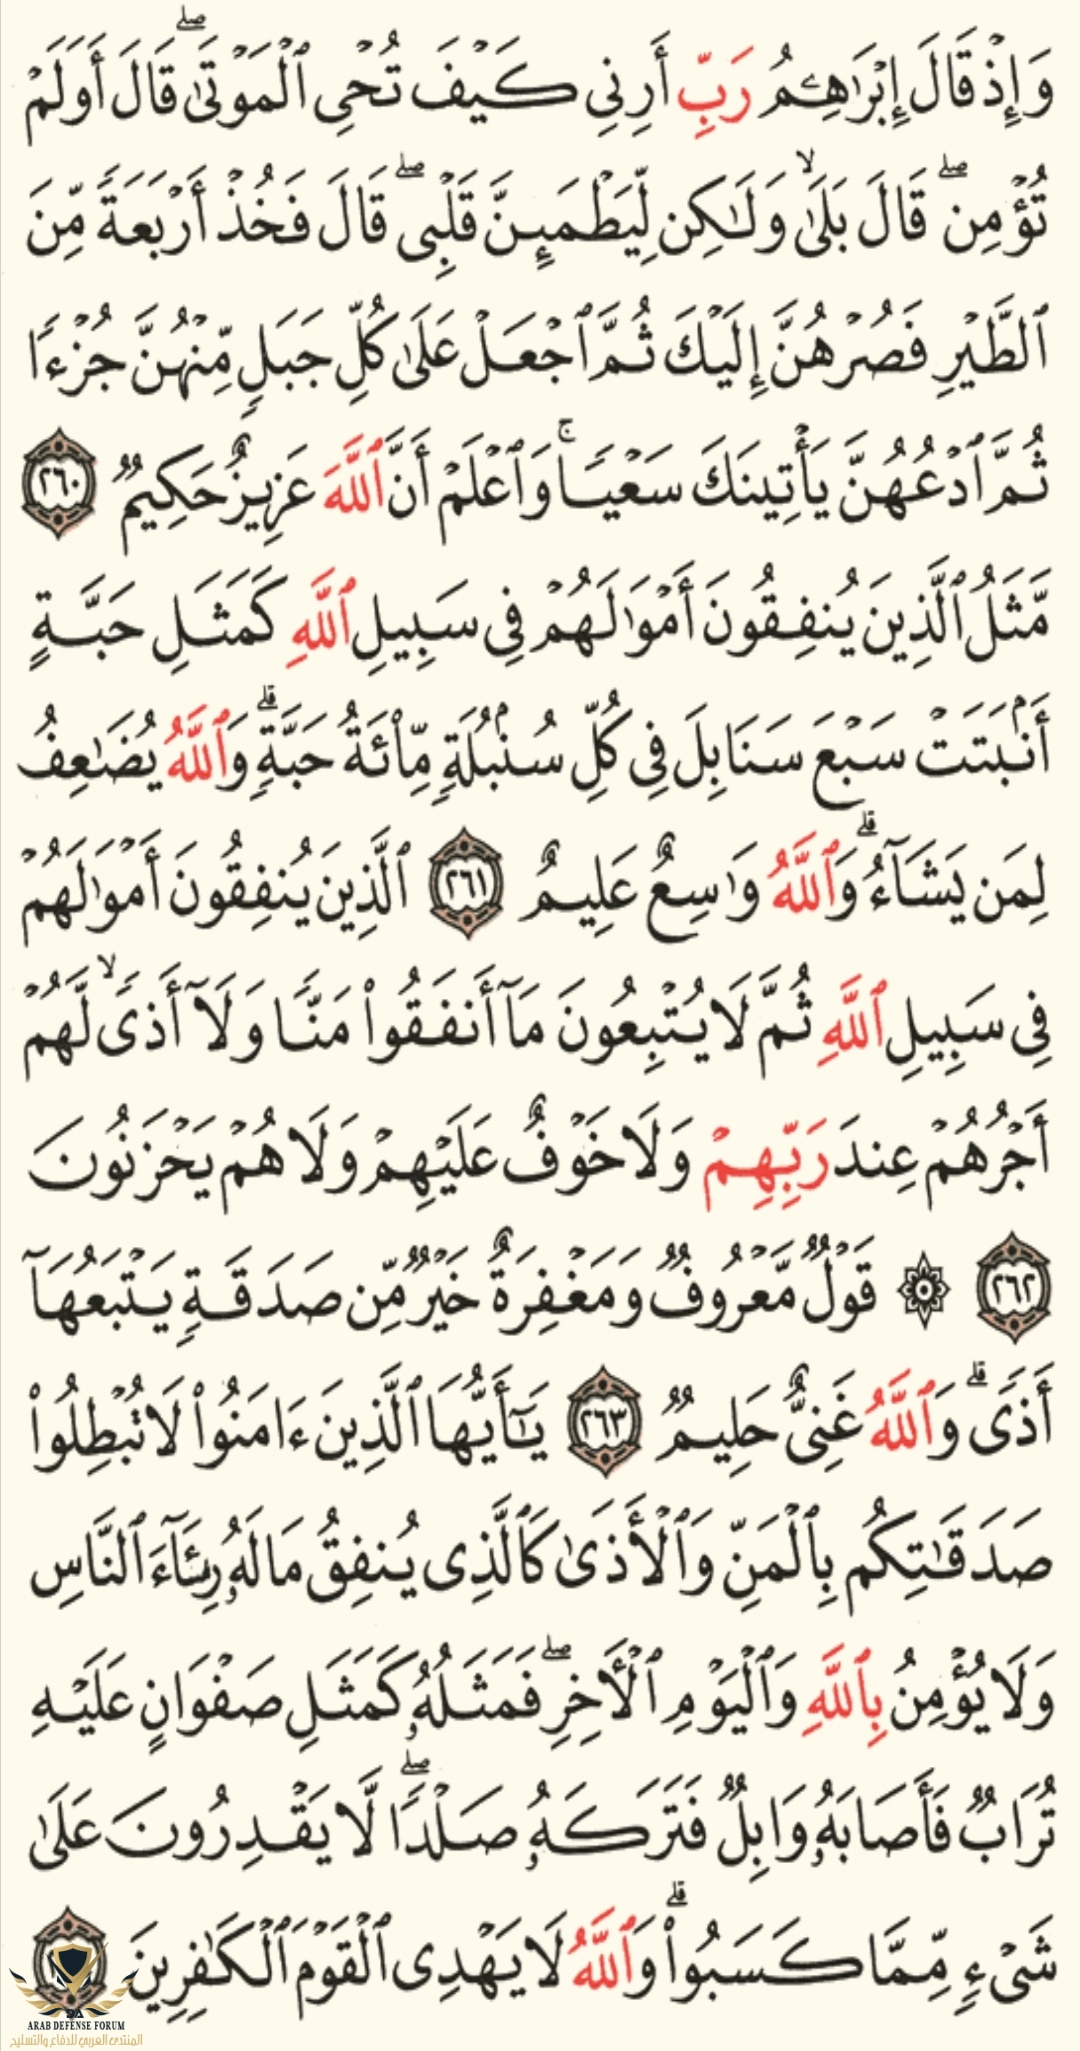 وَإِذْ قَالَ إِبْرَٰهِـۧمُ رَبِّ أَرِنِى كَيْفَ تُحْىِ ٱلْمَوْتَىٰ ۖ قَالَ أَوَلَمْ
تُؤْمِن ۖ قَالَ بَلَىٰ ۙ وَلَـٰكِن لِّيَطْمَئِنَّ قَلْبِى ۖ قَالَ فَخُذْ أَرْبَعَةً مِّنَ
ٱلطَّيْرِ فَصُرْهُنَّ إِلَيْكَ ثُمَّ ٱجْعَلْ عَلَىٰ كُلِّ جَبَلٍ مِّنْهُنَّ جُزْءًا
ثُمَّ ٱدْعُهُنَّ يَأْتِينَكَ سَعْيًا ۚ وَٱعْلَمْ أَنَّ ٱللَّهَ عَزِيزٌ حَكِيمٌ ٢٦٠
مَّثَلُ ٱلَّذِينَ يُنفِقُونَ أَمْوَٰلَهُمْ فِى سَبِيلِ ٱللَّهِ كَمَثَلِ حَبَّةٍ
أَنۢبَتَتْ سَبْعَ سَنَابِلَ فِى كُلِّ سُنۢبُلَةٍ مِّا۟ئَةُ حَبَّةٍ ۗ وَٱللَّهُ يُضَـٰعِفُ
لِمَن يَشَآءُ ۗ وَٱللَّهُ وَٰسِعٌ عَلِيمٌ ٢٦١ ٱلَّذِينَ يُنفِقُونَ أَمْوَٰلَهُمْ
فِى سَبِيلِ ٱللَّهِ ثُمَّ لَا يُتْبِعُونَ مَآ أَنفَقُوا۟ مَنًّا وَلَآ أَذًى ۙ لَّهُمْ
أَجْرُهُمْ عِندَ رَبِّهِمْ وَلَا خَوْفٌ عَلَيْهِمْ وَلَا هُمْ يَحْزَنُونَ
٢٦٢ ۞ قَوْلٌ مَّعْرُوفٌ وَمَغْفِرَةٌ خَيْرٌ مِّن صَدَقَةٍ يَتْبَعُهَآ
أَذًى ۗ وَٱللَّهُ غَنِىٌّ حَلِيمٌ ٢٦٣ يَـٰٓأَيُّهَا ٱلَّذِينَ ءَامَنُوا۟ لَا تُبْطِلُوا۟
صَدَقَـٰتِكُم بِٱلْمَنِّ وَٱلْأَذَىٰ كَٱلَّذِى يُنفِقُ مَالَهُۥ رِئَآءَ ٱلنَّاسِ
وَلَا يُؤْمِنُ بِٱللَّهِ وَٱلْيَوْمِ ٱلْـَٔاخِرِ ۖ فَمَثَلُهُۥ كَمَثَلِ صَفْوَانٍ عَلَيْهِ
تُرَابٌ فَأَصَابَهُۥ وَابِلٌ فَتَرَكَهُۥ صَلْدًا ۖ لَّا يَقْدِرُونَ عَلَىٰ
شَىْءٍ مِّمَّا كَسَبُوا۟ ۗ وَٱللَّهُ لَا يَهْدِى ٱلْقَوْمَ ٱلْكَـٰفِرِينَ
ARAB DEFENSE FORUM
المنتدى العربي للدفاع والتسليح